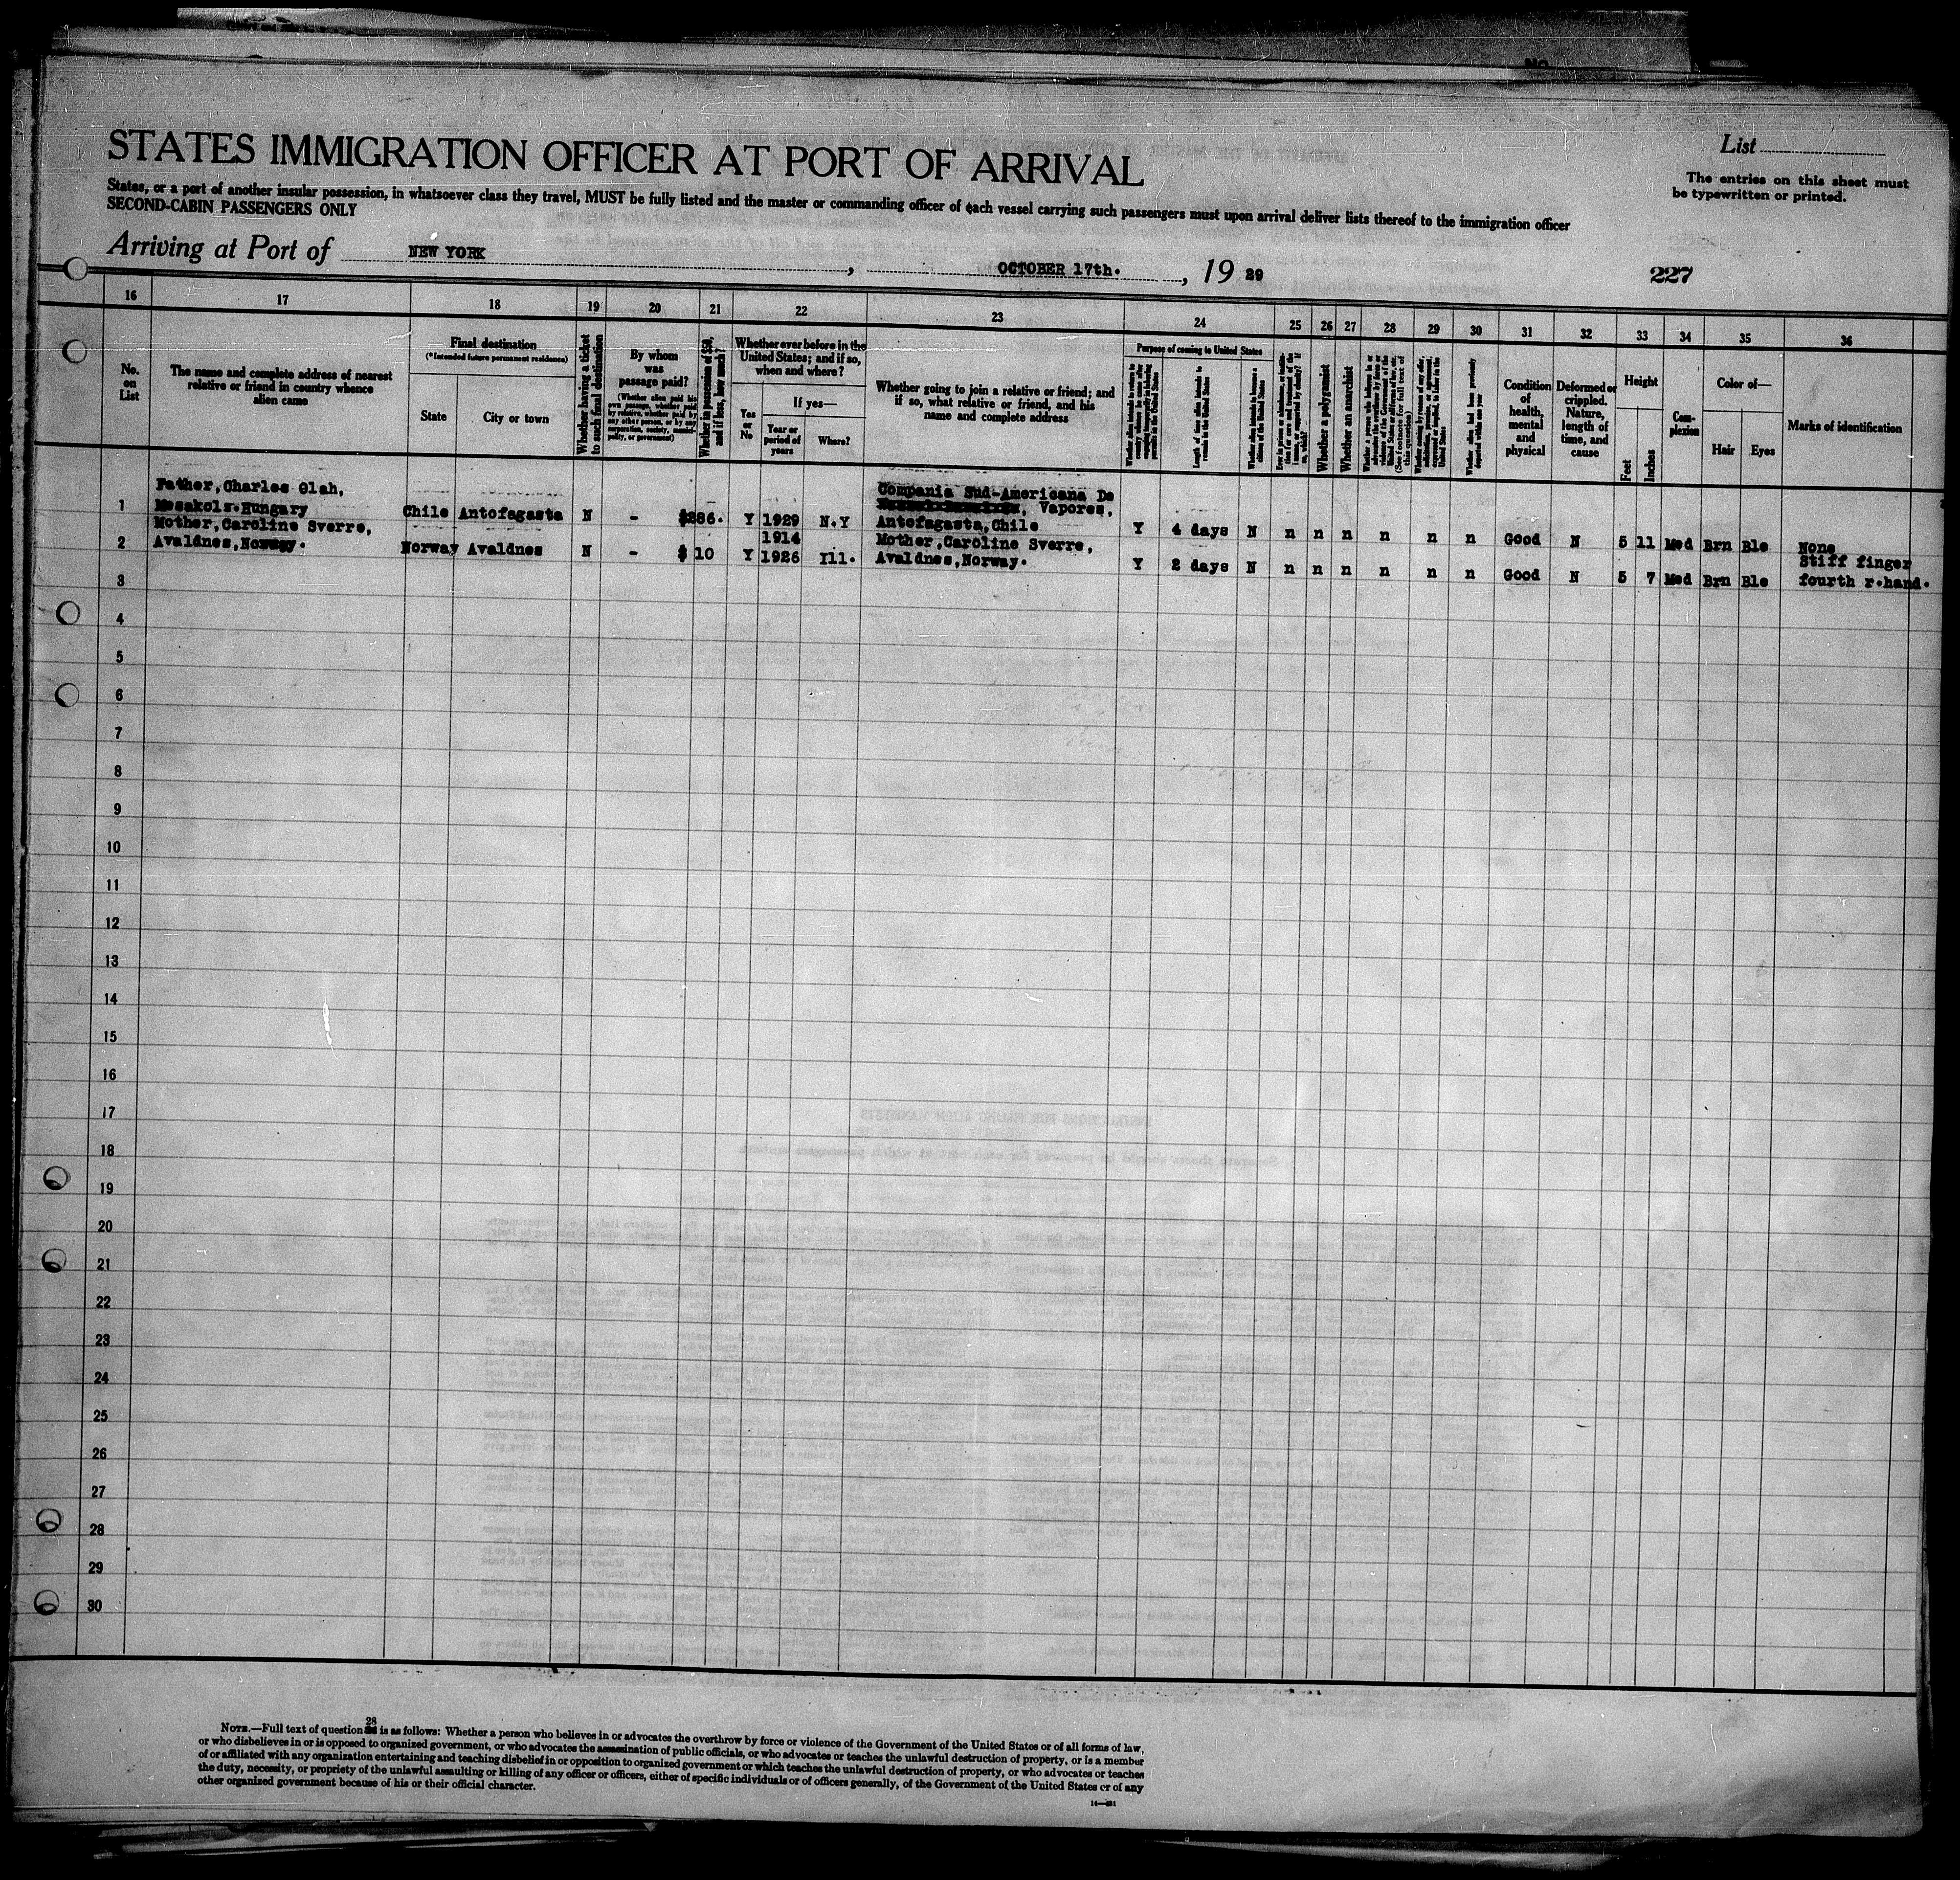 No
STATES IMMIGRATION OFFICER AT PORT OF ARRIVAL
List
The entries on this sheet must
be typewritten or printed.
States, or a port of another insular possession, in whatsoever class they travel, MUST be fully listed and the master or commanding officer of each vessel carrying such passengers must upon arrival deliver lists thereof to the immigration officer
SECOND-CABIN PASSENGERS ONLY
Arriving at Port of NEW YORK, OCTOBER 17th., 19 29
227
16 17 18 19 20 21 22 23 24 25 26 27 28 29 30 31 32 33 34 35 36
No. on List
The name and complete address of nearest relative or friend in country whence alien came
Final destination
(*Intended future permanent residence)
State
City or town
Whether having a ticket to such final destination
By whom was passage paid?
(Whether alien paid his own passage, whether paid by relative, whether paid by any other person, or by any corporation, society, municipality, or government)
Whether in possession of $50, and if less, how much?
Whether ever before in the United States; and if so, when and where?
Yes or No
If yes—
Year or period of years
Where?
Whether going to join a relative or friend; and if so, what relative or friend, and his name and complete address
Purpose of coming to United States
Length of time alien intends to remain in the United States
Whether alien intends to become a citizen of the United States
Whether a polygamist
Whether an anarchist
Condition of health, mental and physical
Deformed or crippled. Nature, length of time, and cause
Height
Feet
Inches
Complexion
Color of—
Hair
Eyes
Marks of identification
1 Father, Charles Olah,
Mesakols. Hungary Chile Antofagasta N - $286. Y 1929 N.Y Compania Sud-Americana De
Vapores,
Antofagasta, Chile Y 4 days N n n n n n n Good N 5 11 Med Brn Ble None
2 Mother, Caroline Sverre,
Avaldnes, Norway. Norway Avaldnes N - $ 10 Y 1914
1926 Ill. Mother, Caroline Sverre,
Avaldnes, Norway. Y 2 days N n n n n n n Good N 5 7 Med Brn Ble Stiff finger
fourth r.hand.
3
4
5
6
7
8
9
10
11
12
13
14
15
16
17
18
19
20
21
22
23
24
25
26
27
28
29
30
NOTE.—Full text of question 28 is as follows: Whether a person who believes in or advocates the overthrow by force or violence of the Government of the United States or of all forms of law,
or who disbelieves in or is opposed to organized government, or who advocates the assassination of public officials, or who advocates or teaches the unlawful destruction of property, or is a member
of or affiliated with any organization entertaining and teaching disbelief in or opposition to organized government or which teaches the unlawful destruction of property, or who advocates or teaches
the duty, necessity, or propriety of the unlawful assaulting or killing of any officer or officers, either of specific individuals or of officers generally, of the Government of the United States or of any
other organized government because of his or their official character.